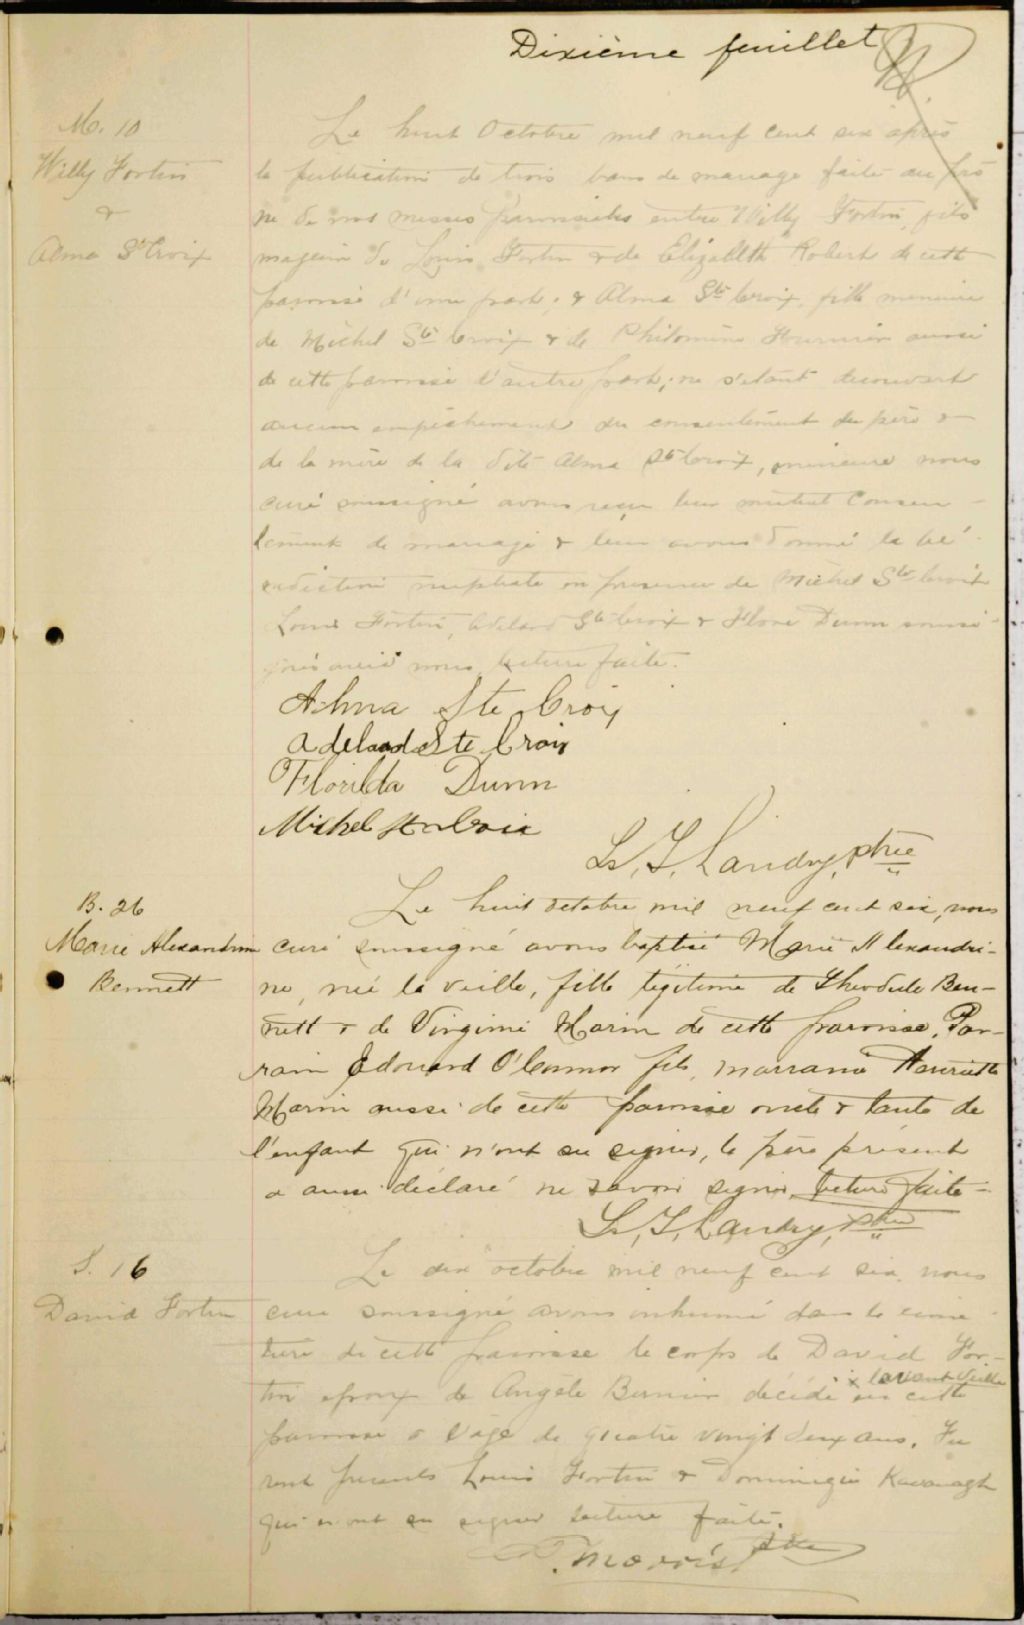 Dixième feuillet
M. 10
Willy Fortin
&
Alma Ste Croix
Le huit Octobre mil neuf cent six après
la publication de trois bans de mariage faite au prô
ne de nos messes paroissiales entre Willy Fortin, fils
majeur de Louis Fortin & de Elizabeth Robert de cette
paroisse d'une part; & Alma Ste Croix, fille mineure
de Michel Ste Croix & de Philomène Fournier aussi
de cette paroisse d'autre part; ne s'étant découvert
aucun empêchement du consentement du père &
de la mère de la dite Alma Ste Croix, mineure nous
curé soussigné avons reçu leur mutuel consen-
tement de mariage & leur avons donné la bé-
nédiction nuptiale en présence de Michel Ste Croix
Louis Fortin, Adelard Ste Croix & Flore Dunn soussi-
gnés avec nous lecture faite.
Alma Ste Croix
Adelard Ste Croix
Florilda Dunn
Michel Ste Croix
Ls. J. Landry, ptre
B. 26
Marie Alexandrine
Bennett
Le huit octobre mil neuf cent six, nous
curé soussigné avons baptisé Marie Alexandri-
ne, née la veille, fille légitime de Théodule Ben-
nett & de Virginie Marin de cette paroisse. Par-
rain Edouard O'Connor fils, marraine Henriette
Marin aussi de cette paroisse oncle & tante de
l'enfant qui n'ont su signer, le père présent
a aussi déclaré ne savoir signer, lecture faite-
Ls. J. Landry, ptre
S. 16
David Fortin
Le dix octobre mil neuf cent six, nous
curé soussigné avons inhumé dans le cime-
tière de cette paroisse le corps de David For-
tin époux de Angèle Bernier décédé x en cette
x l'avant veille
paroisse à l'âge de quatre vingt deux ans. Fu
rent présents Louis Fortin & Dominique Kavanagh
qui n'ont su signer lecture faite.
Morris ptre